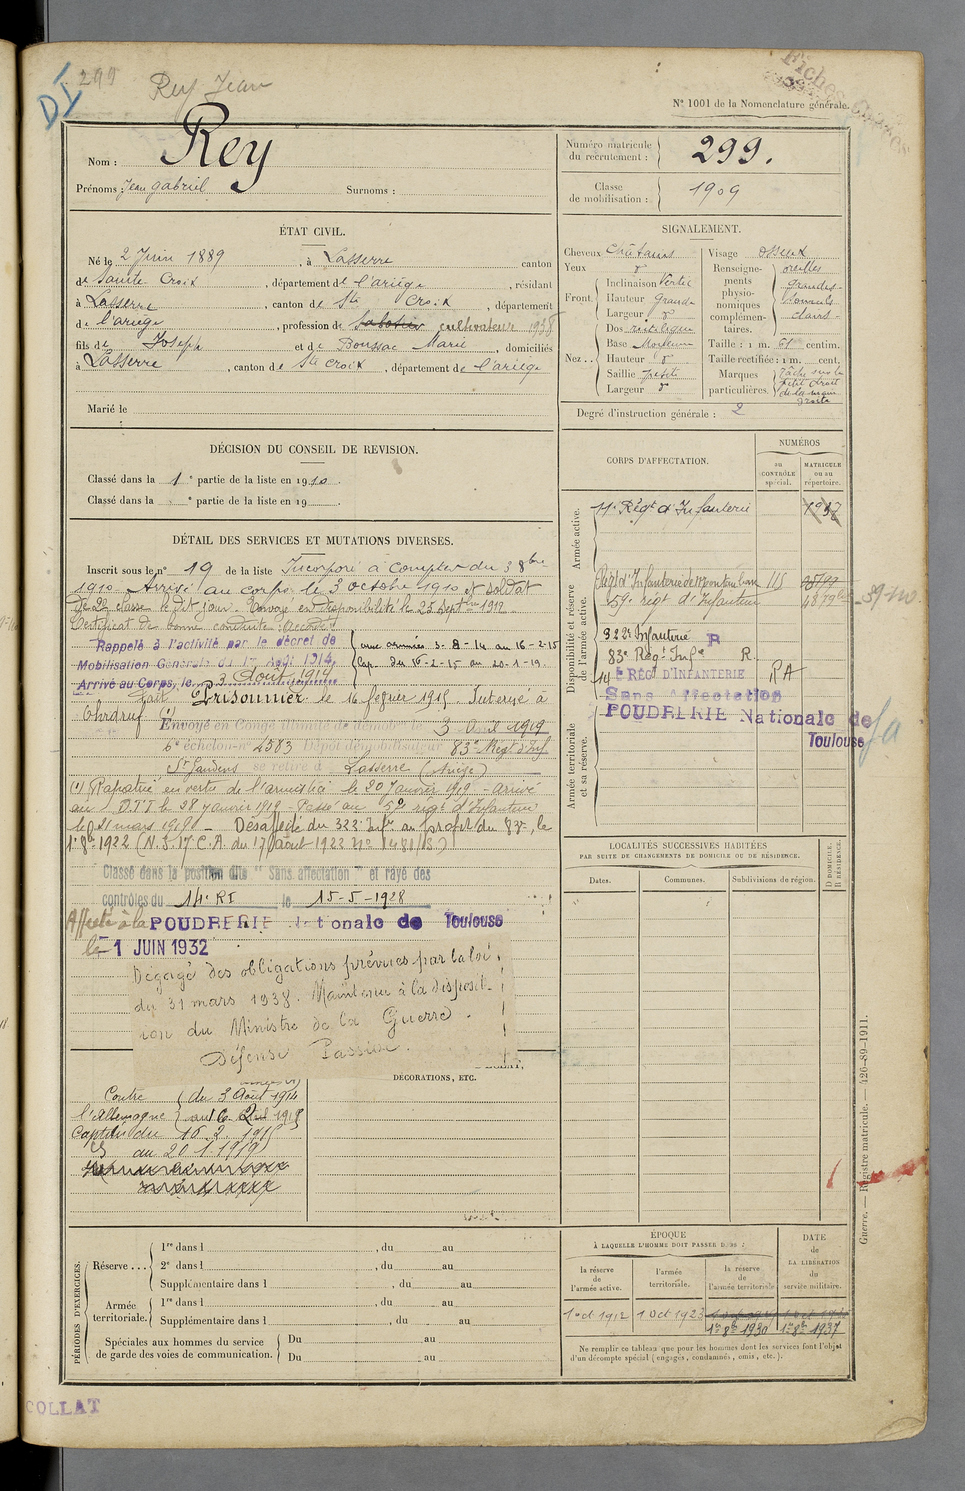 DI
299
Rey Jean
Fiches
N° 1001 de la Nomenclature générale.
Nom : Rey
Prénoms : Jean Gabriel Surnoms :
Numéro matricule du recrutement : 299.
Classe de mobilisation : 1909
ÉTAT CIVIL.
Né le 2 Juin 1889, à Lasserre canton
de Sainte Croix, département de l'ariège, résidant
à Lasserre, canton de Ste Croix, département
de l'ariège, profession de Sabotier cultivateur 1938
fils de Joseph et de Boussac Marie, domiciliés
à Lasserre, canton de Ste Croix, département de l'ariège
Marié le
SIGNALEMENT.
Cheveux Châtains
Yeux
Front. Inclinaison Vertic
Hauteur Grand
Largeur
Nez Dos rectiligne
Base Moyenne
Hauteur
Saillie petite
Largeur
Visage osseux
Renseignements physionomiques complémentaires. oreilles grandes
clairs
Taille : 1 m. 61 centim.
Taille rectifiée : 1 m. cent.
Marques particulières. Tâche sur le petit doigt de la main droite
Degré d'instruction générale : 2
DÉCISION DU CONSEIL DE REVISION.
Classé dans la 1e partie de la liste en 1910.
Classé dans la e partie de la liste en 19
DÉTAIL DES SERVICES ET MUTATIONS DIVERSES.
Inscrit sous le n° 19 de la liste Incorporé à compter du 3 8bre
1910. Arrivé au corps le 3 octobre 1910 et soldat
de 2e classe le dit jour. Envoyé en disponibilité le 25 Septbre 1912
Certificat de bonne conduite accordé
Rappelé à l'activité par le décret de
Mobilisation Générale du 1er Août 1914.
Arrivé au Corps, le 3 Août 1914
aux armées 3-8-14 au 16-2-15
Cap. du 16-2-15 au 20-1-19
Fait Prisonnier le 16 février 1915. Interné à
Ohrdruf (1) Envoyé en Congé illimité de démobilisation 3 Avril 1919
6e échelon n° 2583 Dépôt démobilisateur 83e Régt d'Inf
St Gaudens se retire à Lasserre (Ariège)
(1) Rapatrié en vertu de l'armistice le 20 Janvier 1919 - arrivé
au D.T.I. le 28 Janvier 1919 - Passé au 59e régt d'Infanterie
le 21 mars 1919 - Désaffecté du 322 Infie au profit du 83e, le
1er 8bre 1922 (N.S. 17e C.A. du 17 août 1922 N° 1481/B)
Classé dans la position dite "Sans affectation" et rayé des
contrôles du 14e RI le 15-5-1928
Affecté à la POUDRERIE Nationale de Toulouse
le 1 JUIN 1932
Dégagé des obligations prévues par la loi
du 31 mars 1928. Maintenu à la disposit-
ion du Ministre de la Guerre.
Défense Passive.
CORPS D'AFFECTATION.
NUMÉROS
au CONTRÔLE spécial.
MATRICULE ou au répertoire.
Armée active.
11e Régt d'Infanterie
Disponibilité et réserve de l'armée active.
Régt d'Infanterie de Montauban 115
59e régt d'Infanterie
59-110
322e Infanterie R
83e Régt Infie R.
14e RÉG. D'INFANTERIE RA
Sans Affectation
POUDRERIE Nationale de Toulouse
Armée territoriale et sa réserve.
LOCALITÉS SUCCESSIVES HABITÉES
PAR SUITE DE CHANGEMENTS DE DOMICILE OU DE RÉSIDENCE.
Dates.
Communes.
Subdivisions de région.
D DOMICILE. R RÉSIDENCE.
DÉCORATIONS, ETC.
Contre l'Allemagne du 3 Août 1914
Captivité du 16.2.1915
au 20.1.1919
PÉRIODES D'EXERCICES.
Réserve... 1re dans l , du au
2e dans l , du au
Supplémentaire dans l , du au
Armée territoriale. 1re dans l , du au
Supplémentaire dans l , du au
Spéciales aux hommes du service de garde des voies de communication. Du au
Du au
ÉPOQUE
À LAQUELLE L'HOMME DOIT PASSER DANS :
la réserve de l'armée active.
l'armée territoriale.
la réserve de l'armée territoriale
DATE de LA LIBÉRATION du service militaire.
1 oct 1912
1 Oct 1923
1er 8bre 1930
1er 8bre 1937
Ne remplir ce tableau que pour les hommes dont les services font l'objet
d'un décompte spécial (engagés, condamnés, omis, etc.).
Guerre. — Registre matricule. — 426-89-1911.
COLLAT